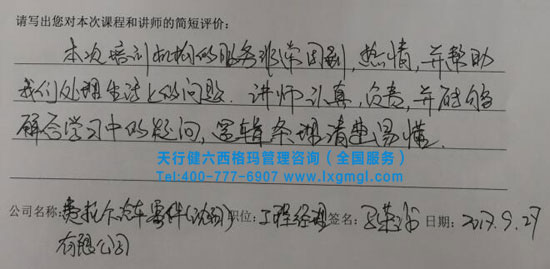 请写出您对本次课程和讲师的简短评价:
本次培训机构的服务非常周到,热情,并帮助
我们处理生活上的问题. 讲师认真,负责,并能够
解答学习中的疑问,逻辑条理清楚易懂.
天行健六西格玛管理咨询(全国服务)
Tel:400-777-6907 www.lxgmgl.com
公司名称: 汽车零件 职位: 工程经理 签名: 日期: 2017.9.27
有限公司